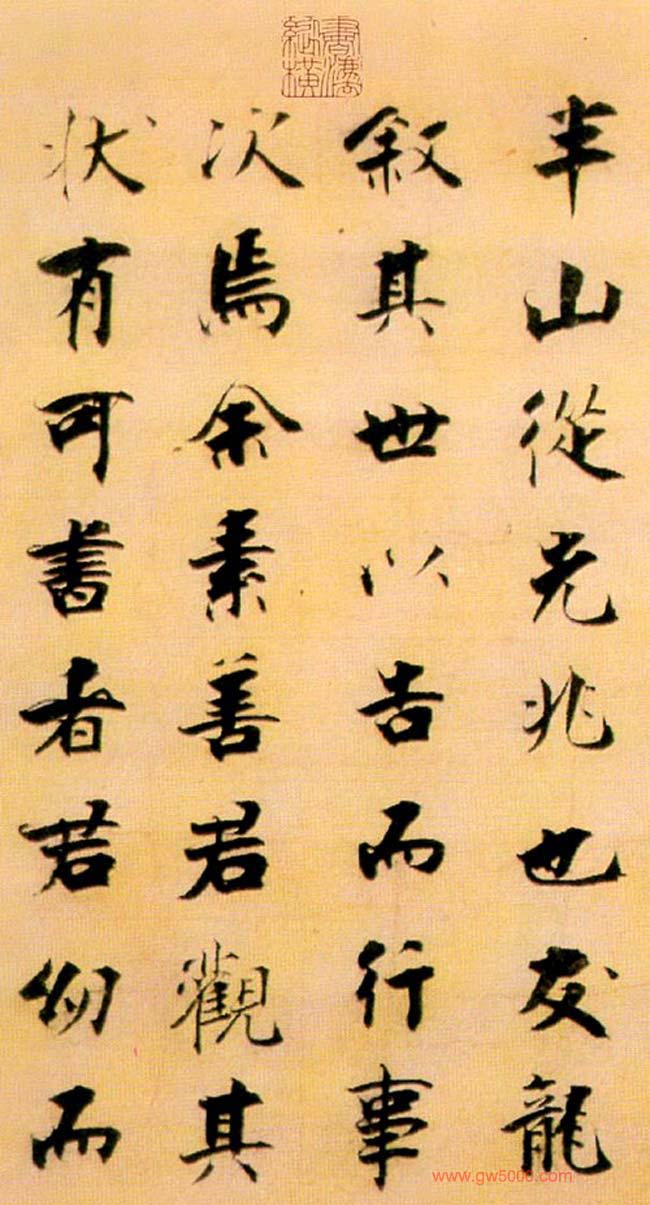 半山從先兆也友龍
敘其世以告而行事
次焉余素善君觀其
狀有可書者若幼而
書濃
縱橫
www.gw5000.com